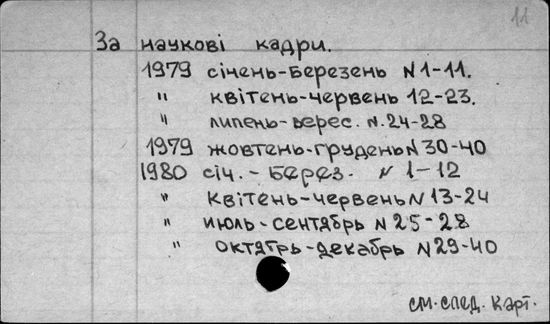 11
За наукові кадри.
1979 січень-березень N 1-11.
" квітень-червень 12-23.
" липень-верес. N. 24-28
1979 жовтень-грудень N 30-40
1980 січ.- Берез. N 1-12
" квітень-червень N 13-24
" июль-сентябрь N 25-28
" октятрь-декабрь N 29-40
см. след. карт.